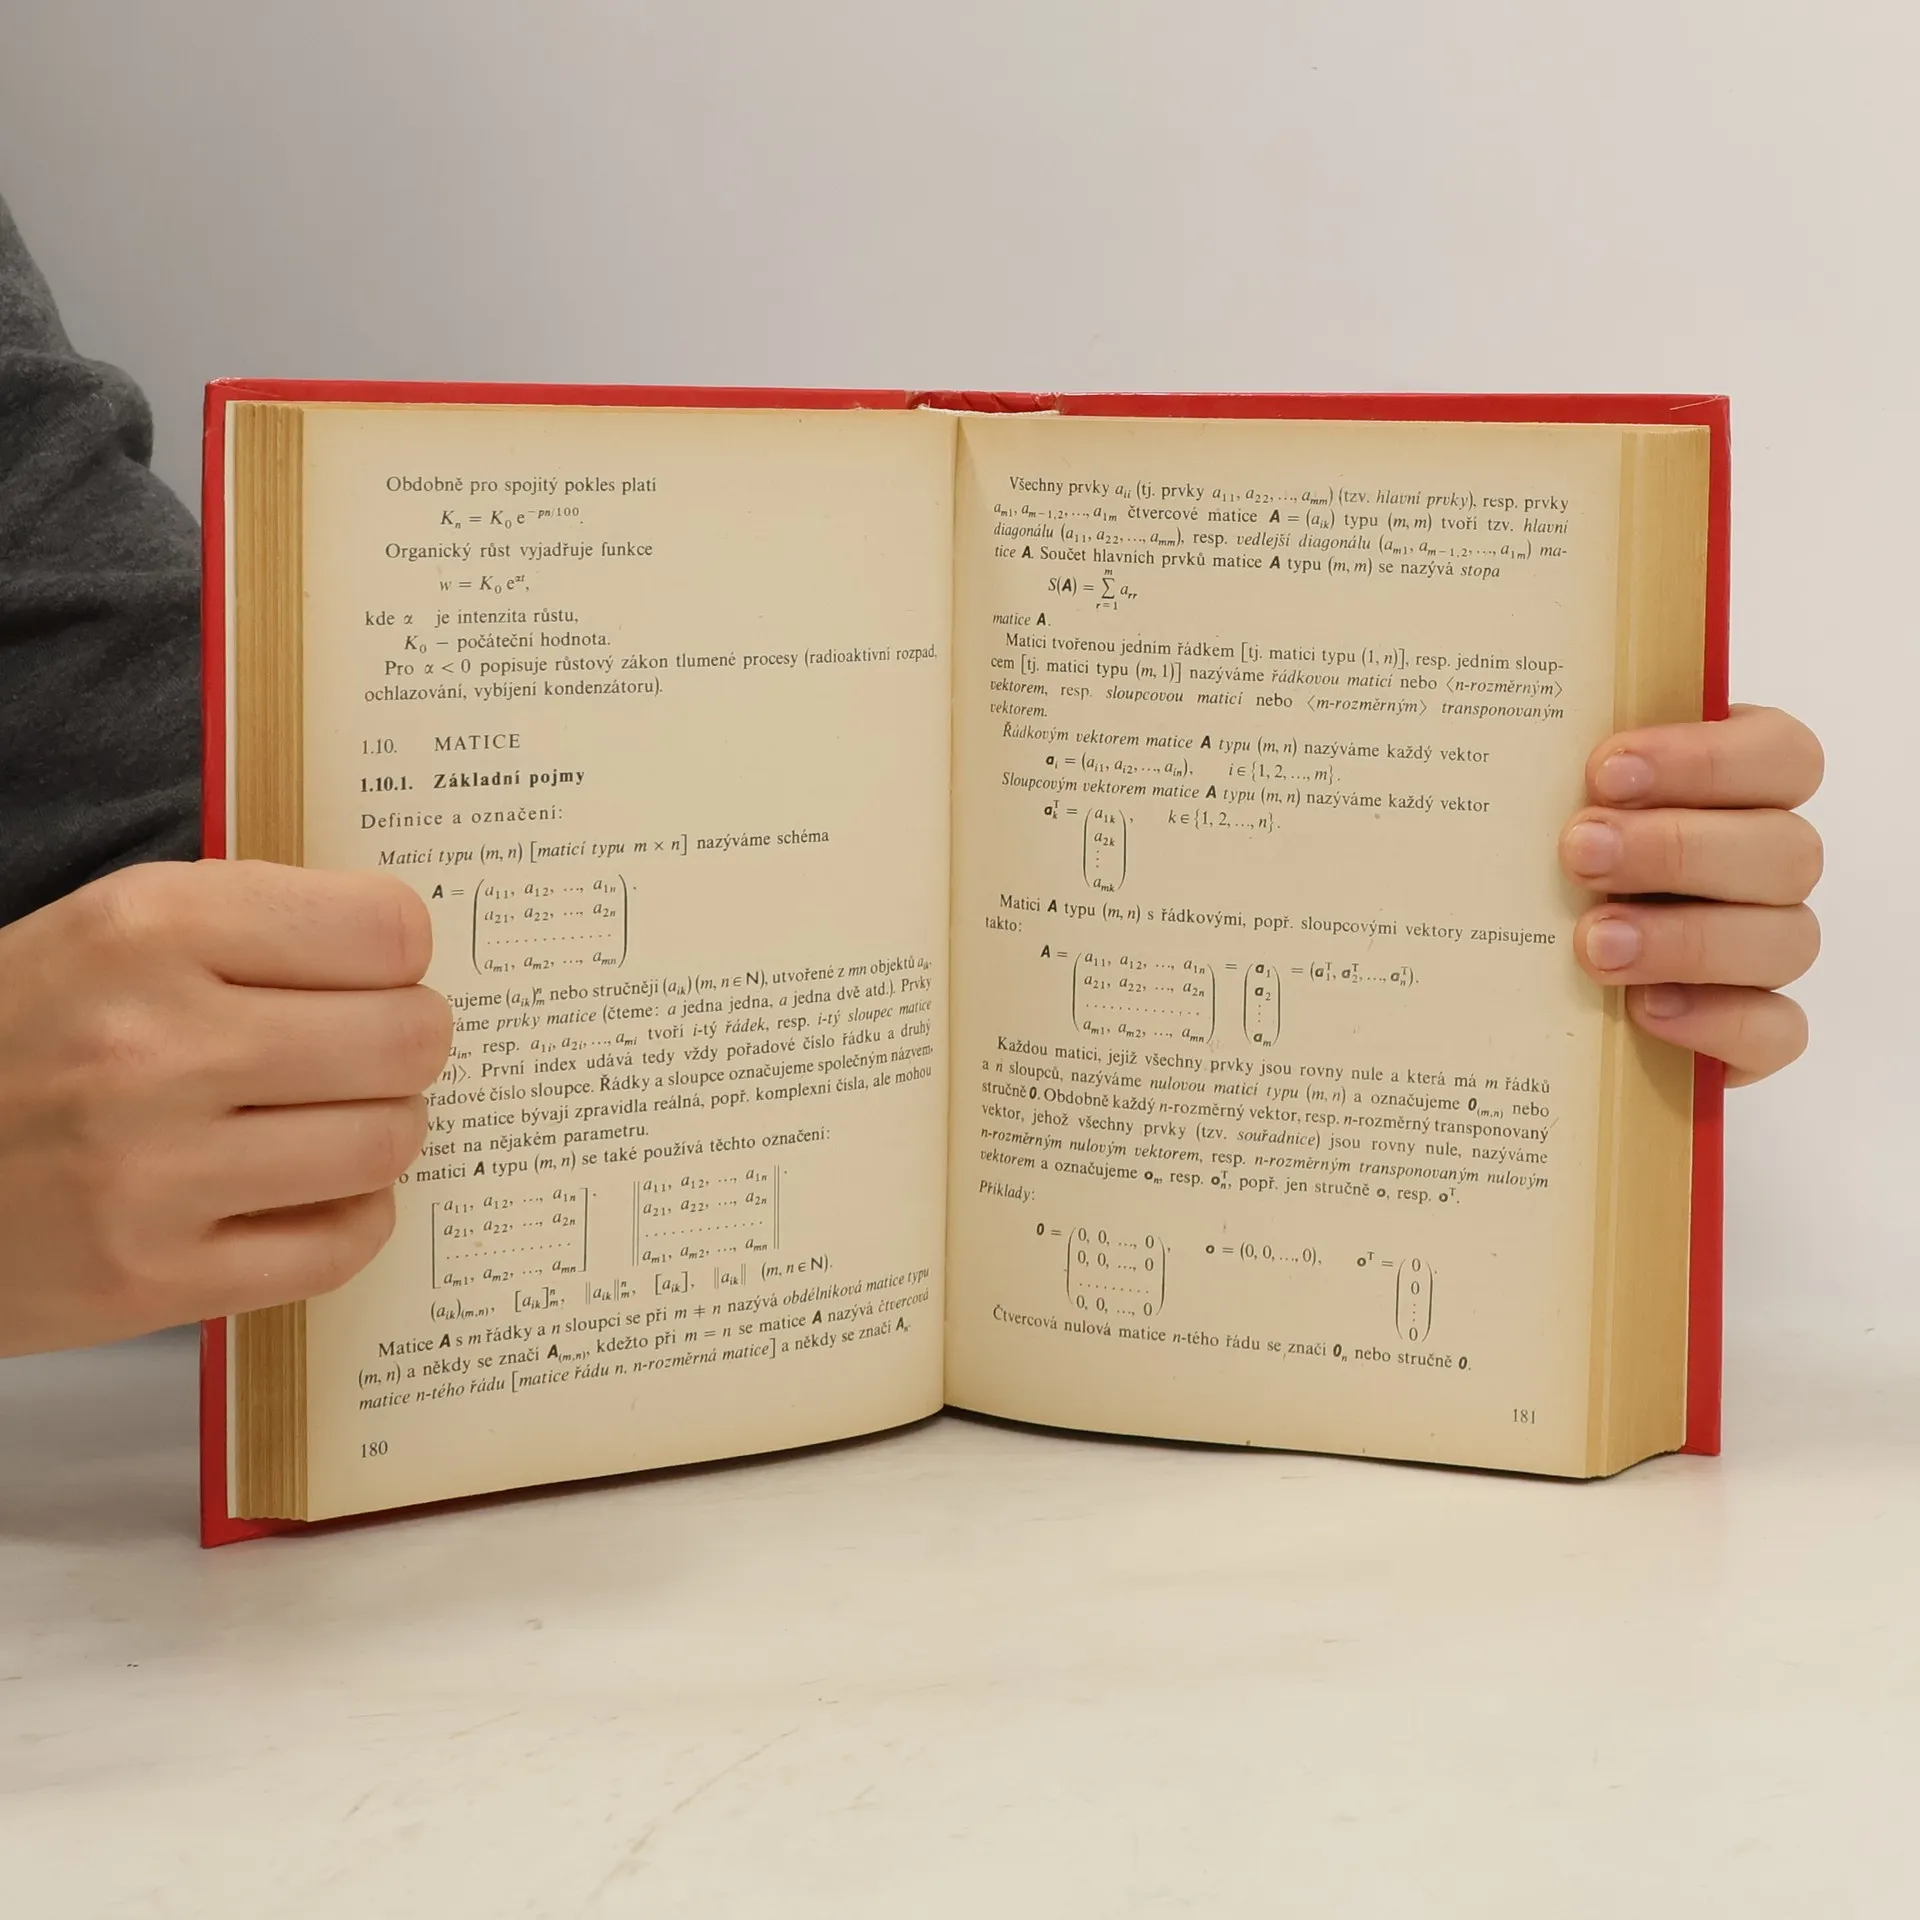 Obdobně pro spojitý pokles platí
Kₙ = K₀ e^{−pn/100}.
Organický růst vyjadřuje funkce
w = K₀ e^{αt},
kde α je intenzita růstu,
K₀ – počáteční hodnota.
Pro α < 0 popisuje růstový zákon tlumené procesy (radioaktivní rozpad,
ochlazování, vybíjení kondenzátoru).
1.10. MATICE
1.10.1. Základní pojmy
Definice a označení:
Maticí typu (m, n) [maticí typu m × n] nazýváme schéma
A = (a₁₁, a₁₂, ..., a₁ₙ).
a₂₁, a₂₂, ..., a₂ₙ
. . . . . . . . . . . . .
aₘ₁, aₘ₂, ..., aₘₙ
(a_{ik})ₘⁿ nebo stručněji (a_{ik}) (m, n ∈ N), utvořené z mn objektů a_{ik}.
prvky matice (čteme: a jedna jedna, a jedna dvě atd.). Prvky
a_{in}, resp. a_{1i}, a_{2i}, ..., a_{mi} tvoří i-tý řádek, resp. i-tý sloupec matice
n)⟩. První index udává tedy vždy pořadové číslo řádku a druhý
číslo sloupce. Řádky a sloupce označujeme společným názvem
matice bývají zpravidla reálná, popř. komplexní čísla, ale mohou
viset na nějakém parametru.
matici A typu (m, n) se také používá těchto označení:
[a₁₁, a₁₂, ..., a₁ₙ]. ‖a₁₁, a₁₂, ..., a₁ₙ‖.
a₂₁, a₂₂, ..., a₂ₙ a₂₁, a₂₂, ..., a₂ₙ
. . . . . . . . . . . . . . . . . . . . . . . . . .
aₘ₁, aₘ₂, ..., aₘₙ aₘ₁, aₘ₂, ..., aₘₙ
(a_{ik})_{(m,n)}, [a_{ik}]ₘⁿ, ‖a_{ik}‖ₘⁿ, [a_{ik}], ‖a_{ik}‖ (m, n ∈ N).
Matice A s m řádky a n sloupci se při m ≠ n nazývá obdélníková matice typu
(m, n) a někdy se značí A_{(m,n)}, kdežto při m = n se matice A nazývá čtvercová
matice n-tého řádu [matice řádu n, n-rozměrná matice] a někdy se značí Aₙ.
180
Všechny prvky a_{ii} (tj. prvky a₁₁, a₂₂, ..., aₘₘ) (tzv. hlavní prvky), resp. prvky
a_{m1}, a_{m−1,2}, ..., a_{1m} čtvercové matice A = (a_{ik}) typu (m, m) tvoří tzv. hlavní
diagonálu (a₁₁, a₂₂, ..., aₘₘ), resp. vedlejší diagonálu (a_{m1}, a_{m−1,2}, ..., a_{1m}) ma-
tice A. Součet hlavních prvků matice A typu (m, m) se nazývá stopa
S(A) = ∑_{r=1}^{m} a_{rr}
matice A.
Matici tvořenou jedním řádkem [tj. matici typu (1, n)], resp. jedním sloup-
cem [tj. matici typu (m, 1)] nazýváme řádkovou maticí nebo ⟨n-rozměrným⟩
vektorem, resp. sloupcovou maticí nebo ⟨m-rozměrným⟩ transponovaným
vektorem.
Řádkovým vektorem matice A typu (m, n) nazýváme každý vektor
a_i = (a_{i1}, a_{i2}, ..., a_{in}), i ∈ {1, 2, ..., m}.
Sloupcovým vektorem matice A typu (m, n) nazýváme každý vektor
a_k^T = (a_{1k}), k ∈ {1, 2, ..., n}.
a_{2k}
⋮
a_{mk}
Matici A typu (m, n) s řádkovými, popř. sloupcovými vektory zapisujeme
takto:
A = (a₁₁, a₁₂, ..., a₁ₙ) = (a₁) = (a₁^T, a₂^T, ..., aₙ^T).
a₂₁, a₂₂, ..., a₂ₙ a₂
. . . . . . . . . . . . . ⋮
aₘ₁, aₘ₂, ..., aₘₙ aₘ
Každou matici, jejíž všechny prvky jsou rovny nule a která má m řádků
a n sloupců, nazýváme nulovou maticí typu (m, n) a označujeme 0_{(m,n)} nebo
stručně 0. Obdobně každý n-rozměrný vektor, resp. n-rozměrný transponovaný
vektor, jehož všechny prvky (tzv. souřadnice) jsou rovny nule, nazýváme
n-rozměrným nulovým vektorem, resp. n-rozměrným transponovaným nulovým
vektorem a označujeme oₙ, resp. oₙ^T, popř. jen stručně o, resp. o^T.
Příklady:
0 = (0, 0, ..., 0), o = (0, 0, ..., 0), o^T = (0).
0, 0, ..., 0 0
. . . . . . . . ⋮
0, 0, ..., 0 0
Čtvercová nulová matice n-tého řádu se značí 0ₙ nebo stručně 0.
181